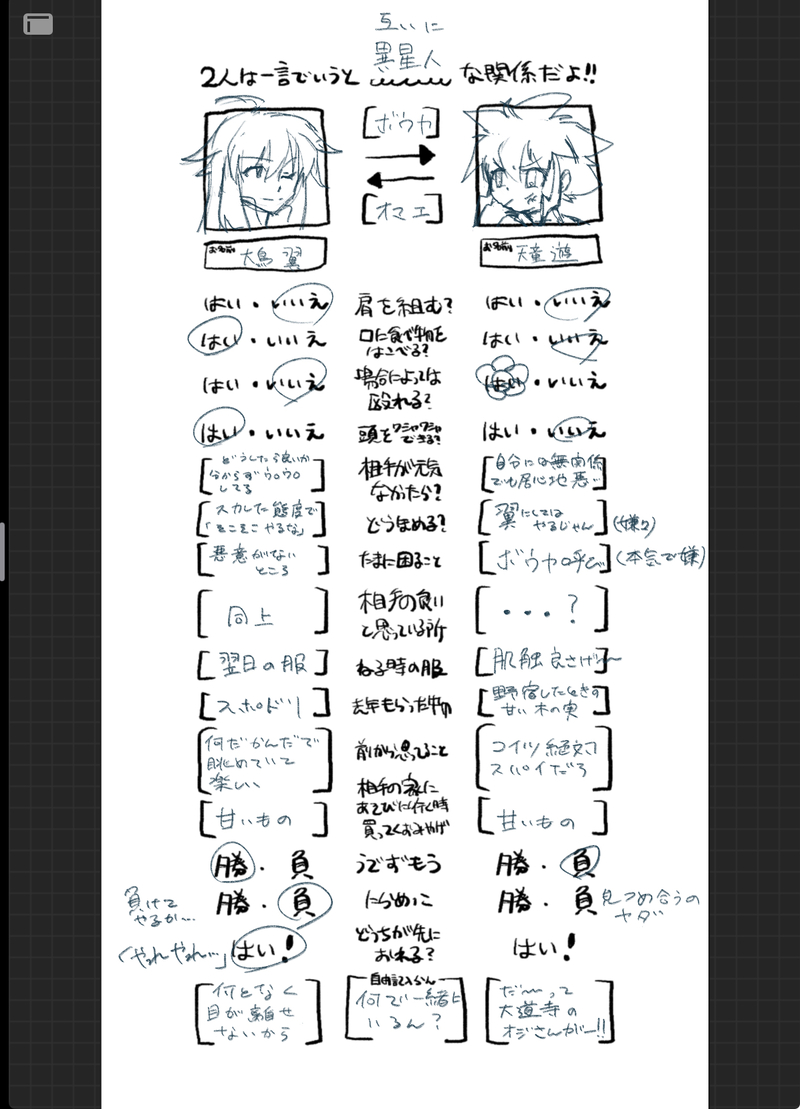 互いに
異星人
2人は一言でいうと な関係だよ!!
[ボウヤ]
[オマエ]
お名前 大鳥 翼
お名前 天童 遊
はい・いいえ 肩を組む? はい・いいえ
はい・いいえ 口に食べ物を はい・いいえ
はこべる?
はい・いいえ 場合によっては はい・いいえ
殴れる?
はい・いいえ 頭をワシャワシャ はい・いいえ
できる?
[どうしたら良いか 相手が元気 [自分には無関係
分からずウロウロ なかったら? でも居心地悪い]
してる]
[スカした態度で どうほめる? [翼にしては
「そこそこやるな」] やるじゃん] (嫌々)
[悪意がない たまに困ること [ボウヤ呼び] (本気で嫌)
ところ]
[同上] 相手の良い [・・・?]
と思っている所
[翌日の服] ねる時の服 [肌触良さげ]
[スポドリ] 去年もらった中の [野宿したときの
甘い木の実]
[何だかんだで 前から思ってること [コイツ絶対
眺めていて スパイだろ]
楽しい]
相手の家に
あそびに行く時
[甘いもの] 買ってくおみやげ [甘いもの]
勝・負 うでずもう 勝・負
負けて
やるか… 勝・負 にらめっこ 勝・負 見つめ合うの
ヤダ
「やれやれ…」はい! どっちが先に はい!
おれる?
自由記入らん
[何となく [何で一緒に [だ〜って
目が離せ いるん?] 大道寺の
ないから] オジさんがー!!]